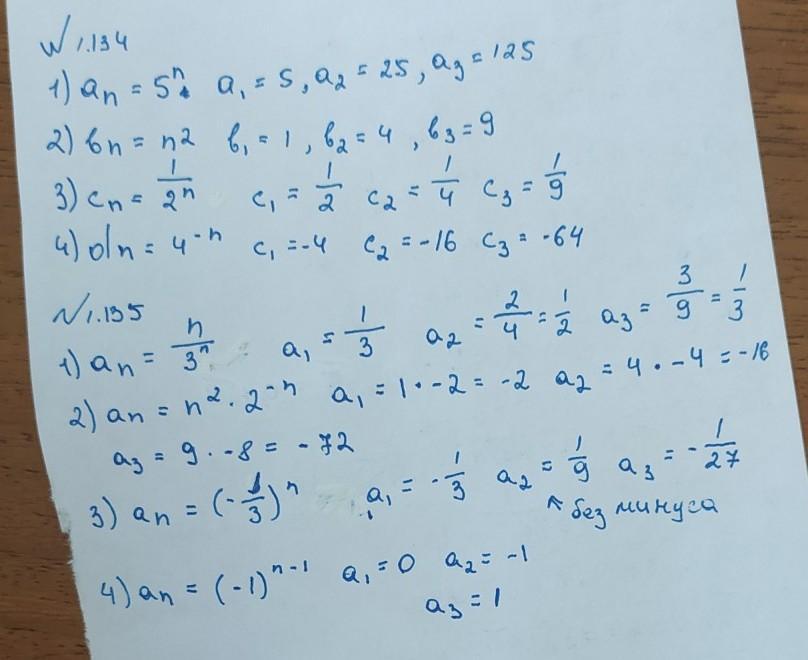 № 1.134
1) aₙ = 5ⁿ. a₁ = 5, a₂ = 25, a₃ = 125
2) bₙ = n² b₁ = 1, b₂ = 4, b₃ = 9
3) cₙ = 1/2ⁿ c₁ = 1/2 c₂ = 1/4 c₃ = 1/9
4) dₙ = 4⁻ⁿ c₁ = -4 c₂ = -16 c₃ = -64
№ 1.135
1) aₙ = n/3ⁿ a₁ = 1/3 a₂ = 2/4 = 1/2 a₃ = 3/9 = 1/3
2) aₙ = n² · 2⁻ⁿ a₁ = 1 · -2 = -2 a₂ = 4 · -4 = -16
a₃ = 9 · -8 = -72
3) aₙ = (-1/3)ⁿ a₁ = -1/3 a₂ = 1/9 a₃ = -1/27
↖ без минуса
4) aₙ = (-1)ⁿ⁻¹ a₁ = 0 a₂ = -1
a₃ = 1